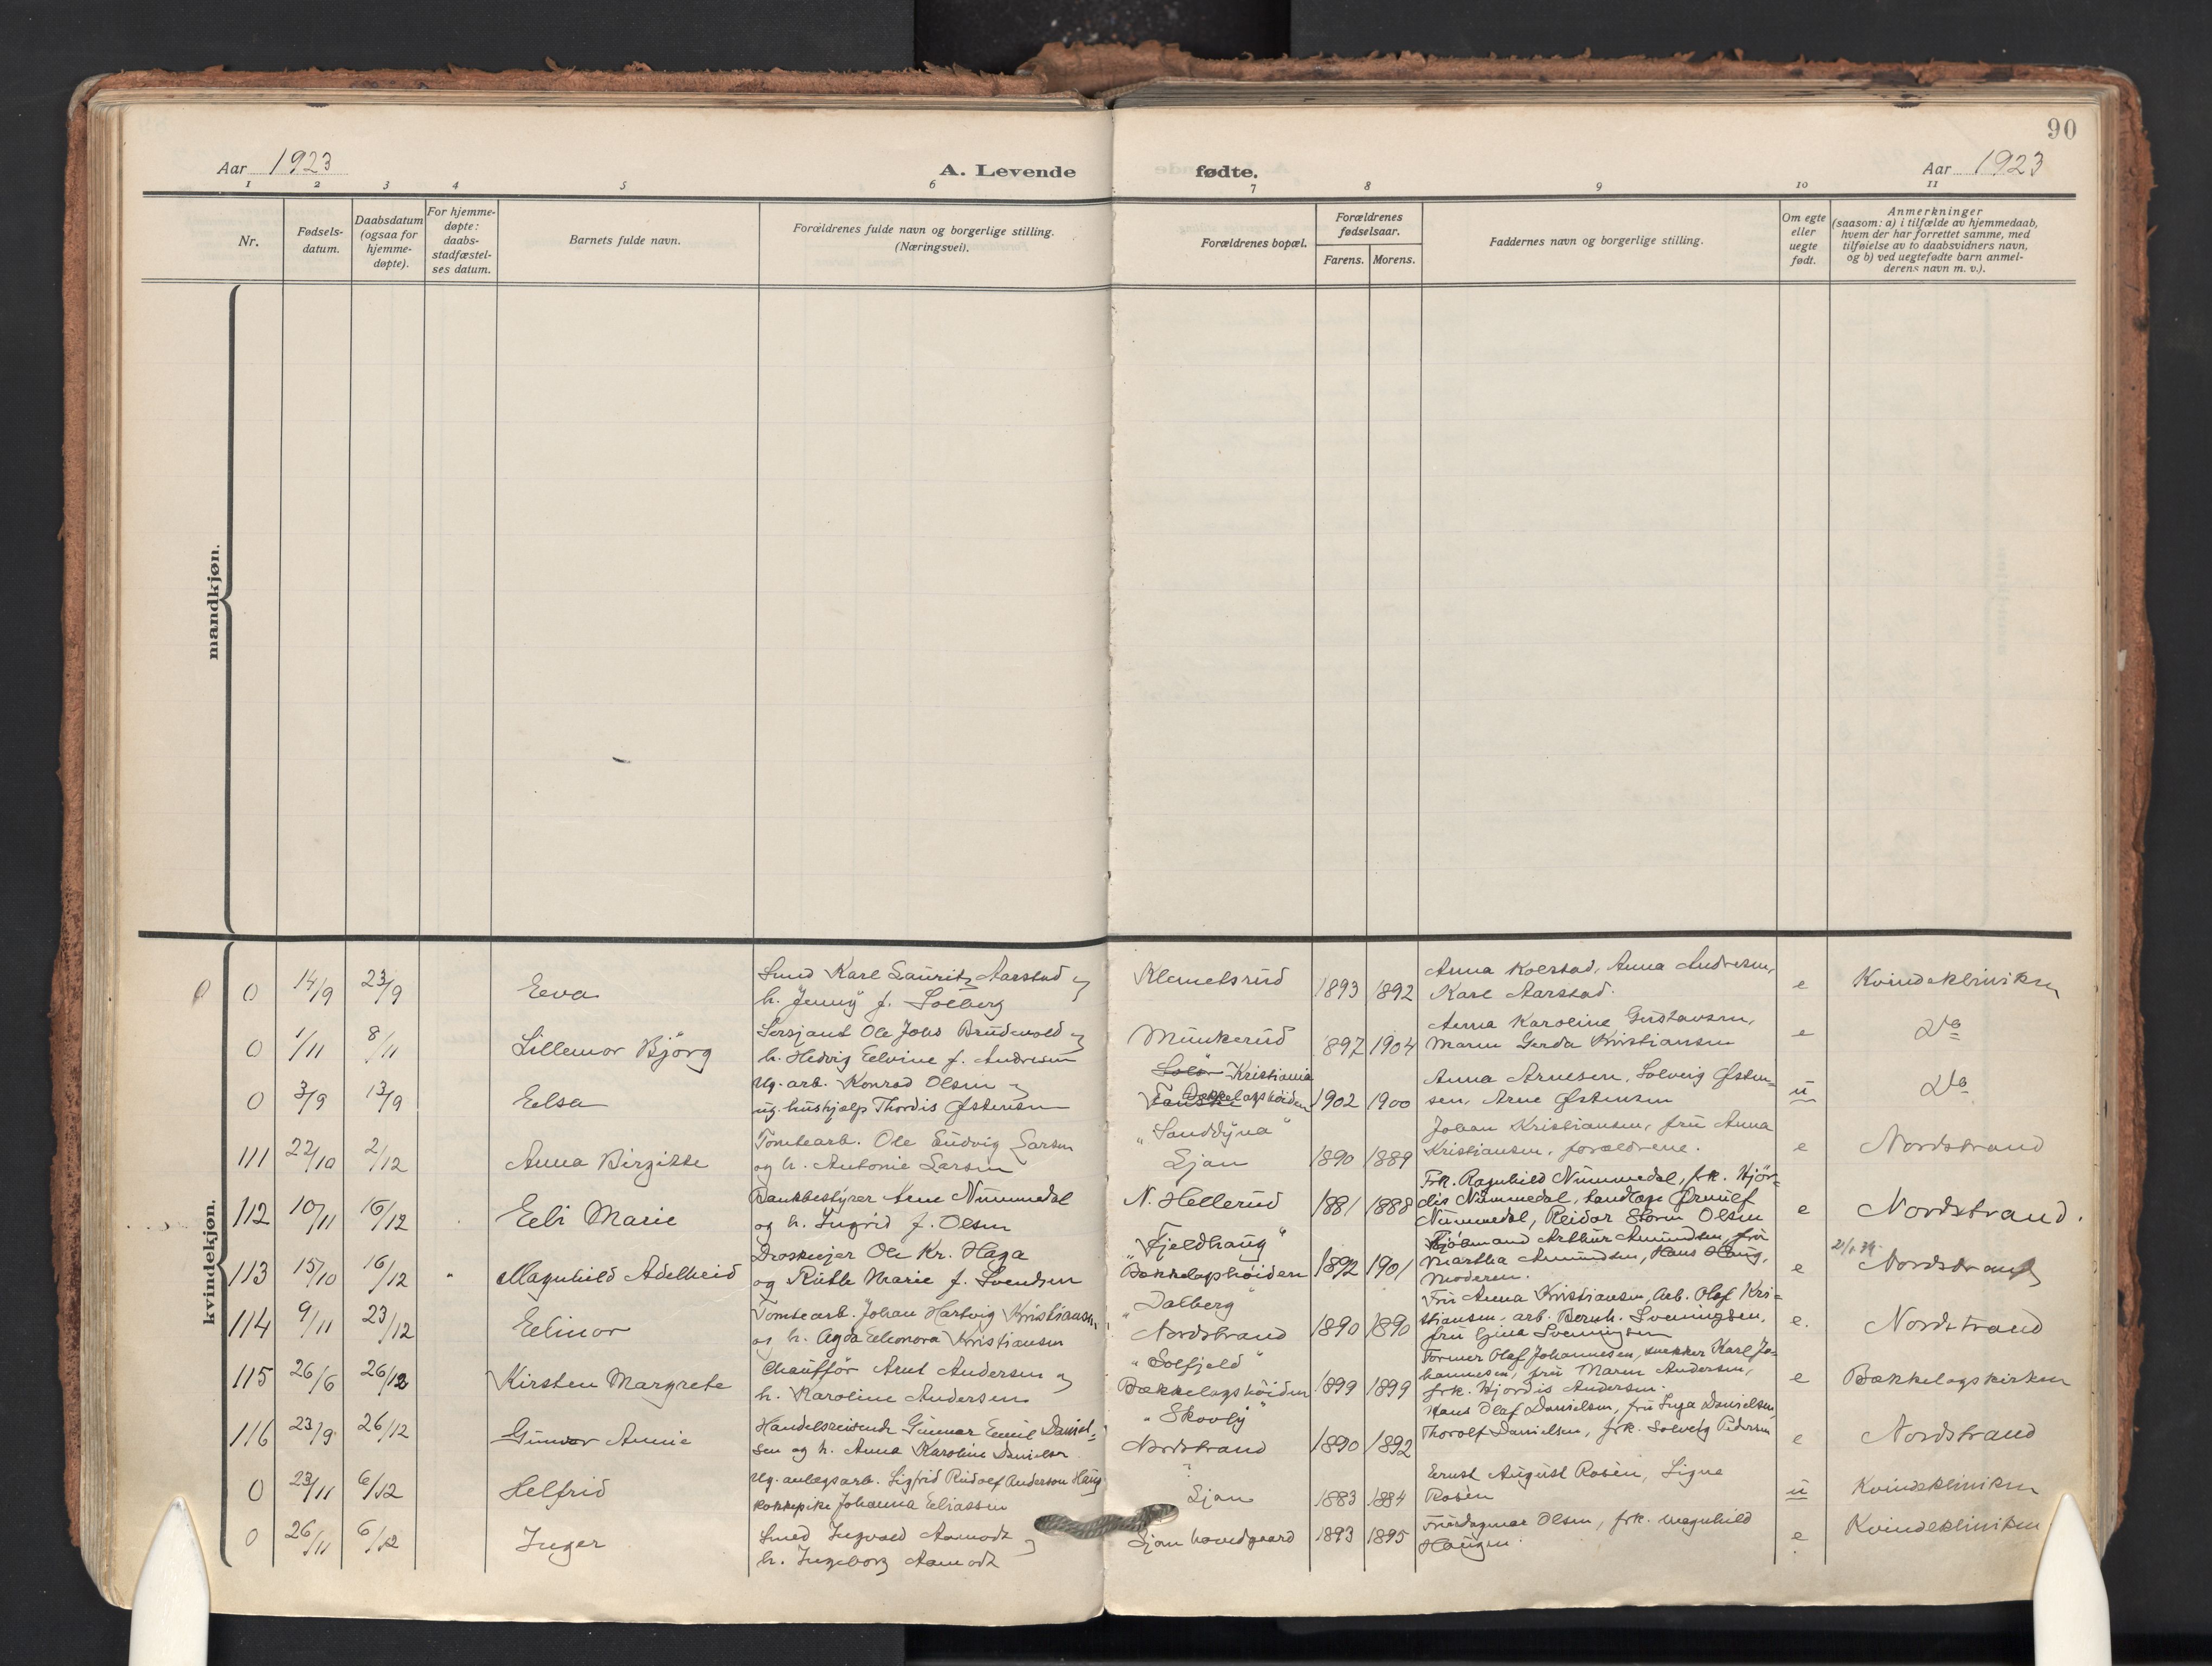 90
Aar 1923
A. Levende fødte.
Aar 1923
1 2 3 4 5 6 7 8 9 10 11
Nr.
Fødsels-
datum.
Daabsdatum
(ogsaa for
hjemme-
døpte).
For hjemme-
døpte:
daabs-
stadfæstel-
ses datum.
Barnets fulde navn.
Forældrenes fulde navn og borgerlige stilling.
(Næringsvei).
Forældrenes bopæl.
Forældrenes
fødselsaar.
Farens. Morens.
Faddernes navn og borgerlige stilling.
Om egte
eller
uegte
født.
Anmerkninger
(saasom: a) i tilfælde av hjemmedaab,
hvem der har forrettet samme, med
tilføielse av to daabsvidners navn,
og b) ved uegtefødte barn anmel-
derens navn m. v.).
mandkjøn.
kvindekjøn.
0 14/9 23/9 Eeva
Smed Karl Lauritz Aarstad og
h. Jenny f. Solberg
Klemetsrud 1893 1892
Anna Kolstad, Anna Andresen,
Karl Aarstad.
e Kvindeklinikken
0 1/11 8/11 Lillemor Björg
Sersjant Ole Johs Brudevold og
h. Hedvig Eelvine f. Andresen
Munkerud 897 1904
Anna Karoline Gustavsen,
Maren Gerda Kristiansen
e Do
0 3/9 13/9 Eelsa
Ug. arb. Konrad Olsen og
ug. hushjælp Thordis Østensen
Kristiania
Bækkelagshöiden 1902 1900
Anna Arnesen, Solveig Østen=
sen, Arne Østensen
u Do
111 22/10 2/12 Anna Birgitte
Tomtearb. Ole Ludvig Larsen
og h. Antonie Larsen
"Sanddyna"
Ljan 1890 1889
Johan Kristiansen, fru Anna
Kristiansen, forældrene.
e Nordstrand
112 10/11 16/12 Eeli Marie
Bankbestyrer Arne Nummedal
og h. Ingrid f. Olsen
N. Hellerud 1881 1888
Frk. Ragnhild Nummedal, frk. Hjör=
dis Nummedal, Ørnulf
Nummedal, Reidar Storm Olsen
e Nordstrand.
113 15/10 16/12 Magnhild Adelheid
Droskeejer Ole Kr. Haga
og Ruth Marie f. Svendsen
"Fjeldhaug"
Bækkelagshöiden 1892 1901
Kjöbmand Arthur Amundsen, fru
Martha Amundsen, Hans Haug,
Moderen.
e Nordstrand
114 9/11 23/12 Eelinor
Tomtearb. Johan Hartvig Kristiansen
og h. Agda Eeleonora Kristiansen
"Dalberg"
Nordstrand 1890 1890
Fru Anna Kristiansen, arb. Olaf Kri=
stiansen, arb. Bernh. Svenningsen,
fru Gina Svenningsen
e. Nordstrand
115 26/6 26/12 Kirsten Margrete
Chaufför Arnt Andersen og
h. Karoline Andersen
"Solfjeld"
Bækkelagshöiden 1899 1899
Former Olaf Johannesen, snekker Karl Jo=
hannesen, fru Maren Andersen,
frk. Hjordis Andersen.
e Bækkelagskirken
116 23/9 26/12 Gunvor Annie
Handelsreisende Gunnar Eemil Daniel=
sen og h. Anna Karoline Danielsen
"Skovly"
Nordstrand 1890 1892
Hans Olaf Danielsen, fru Inga Danielsen,
Thorolf Danielsen, frk. Solveig Pedersen
e Nordstrand
0 23/11 6/12 Helfrid
Ug. anlægsarb. Sigfrid Rudolf Anderson Haug
kokkepike Johanna Eeliassen
Ljan 1883 1884
Ernst August Rosèn, Signe
Rosèn
u Kvindeklinikken
0 26/11 6/12 Inger
Smed Ingvald Aamodt og
h. Ingeborg Aamodt
Ljan hovedgaard 1893 1895
Fru Dagmar Olsen, frk. Magnhild
Haugen.
e Kvindeklinikken